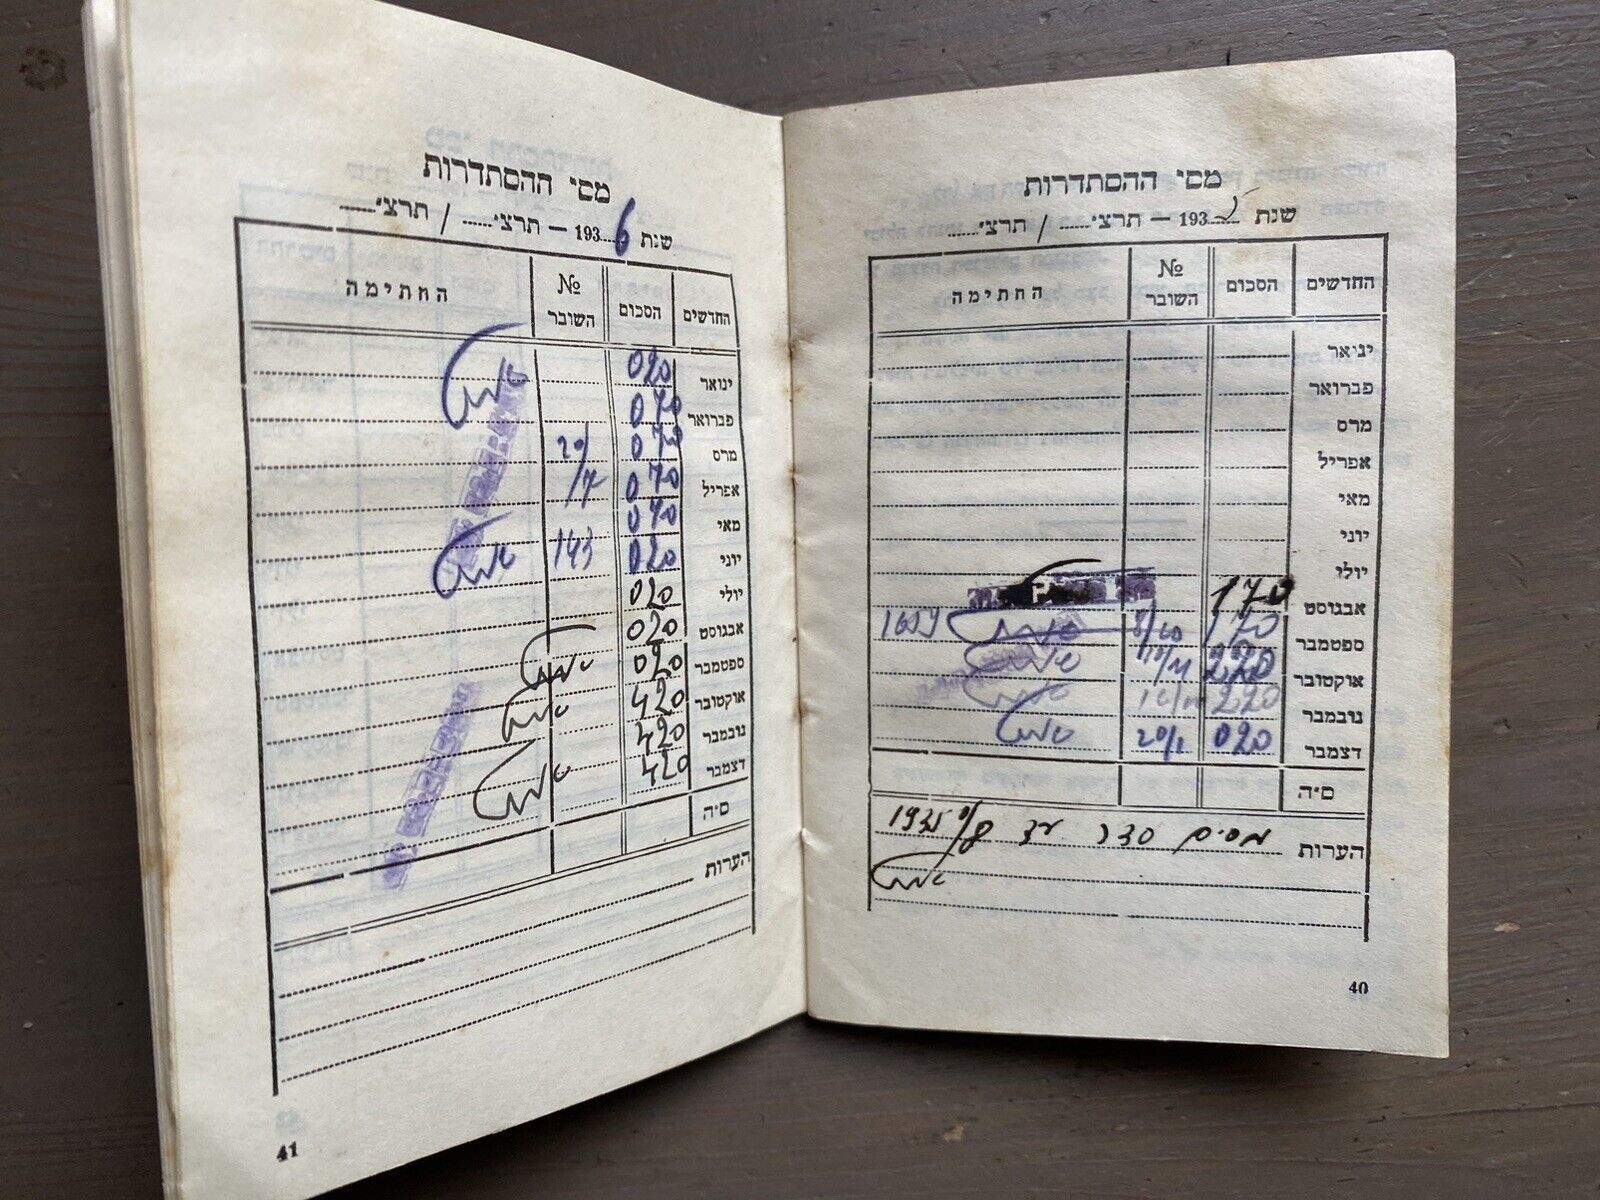 מסי ההסתדרות
שנת 1935 — תרצ״...... / תרצ״......
החדשים הסכום № השובר החתימה
ינואר
פברואר
מרס
אפריל
מאי
יוני
יולי
אבגוסט 170
ספטמבר 170
אוקטובר 220
נובמבר 220
דצמבר 020 20/1
ס״ה
הערות מסים סדר עד 1935
40
מסי ההסתדרות
שנת 1936 — תרצ״...... / תרצ״......
החדשים הסכום № השובר החתימה
ינואר 020
פברואר 070
מרס 070 20/
אפריל 070 /7
מאי 070
יוני 020 143
יולי 020
אבגוסט 020
ספטמבר 020
אוקטובר 420
נובמבר 420
דצמבר 420
ס״ה
הערות
41